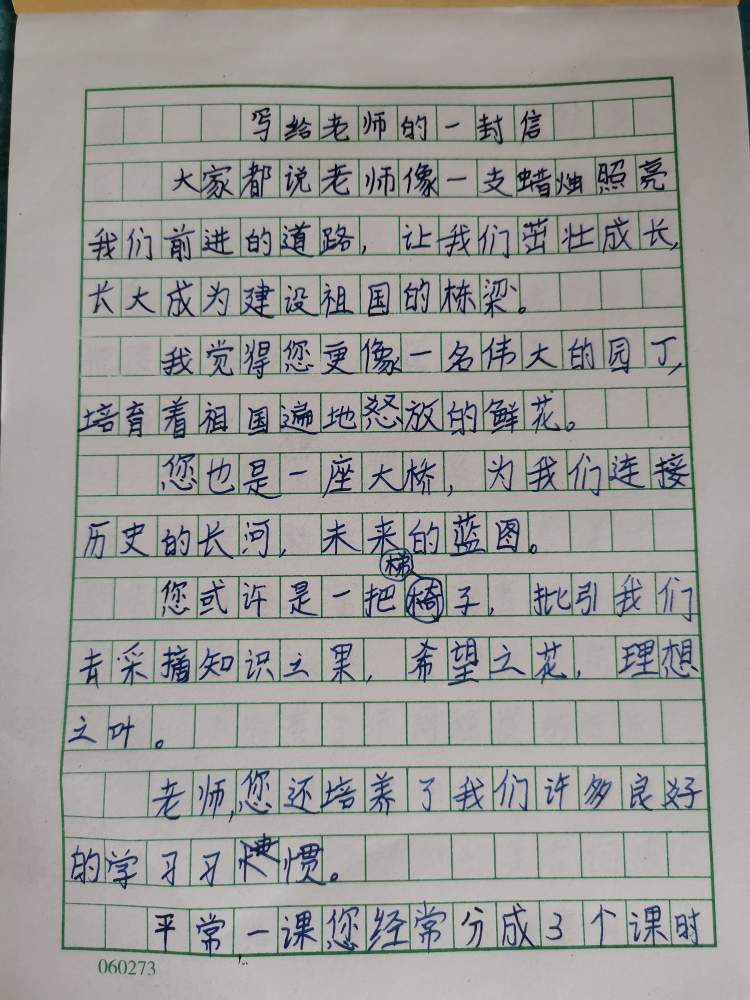 写给老师的一封信
大家都说老师像一支蜡烛照亮
我们前进的道路，让我们茁壮成长，
长大成为建设祖国的栋梁。
我觉得您更像一名伟大的园丁，
培育着祖国遍地怒放的鲜花。
您也是一座大桥，为我们连接
历史的长河，未来的蓝图。
梯
您或许是一把椅子，批引我们
去采摘知识之果，希望之花，理想
之叶。
老师，您还培养了我们许多良好
的学习习惯。
平常一课您经常分成3个课时
060273